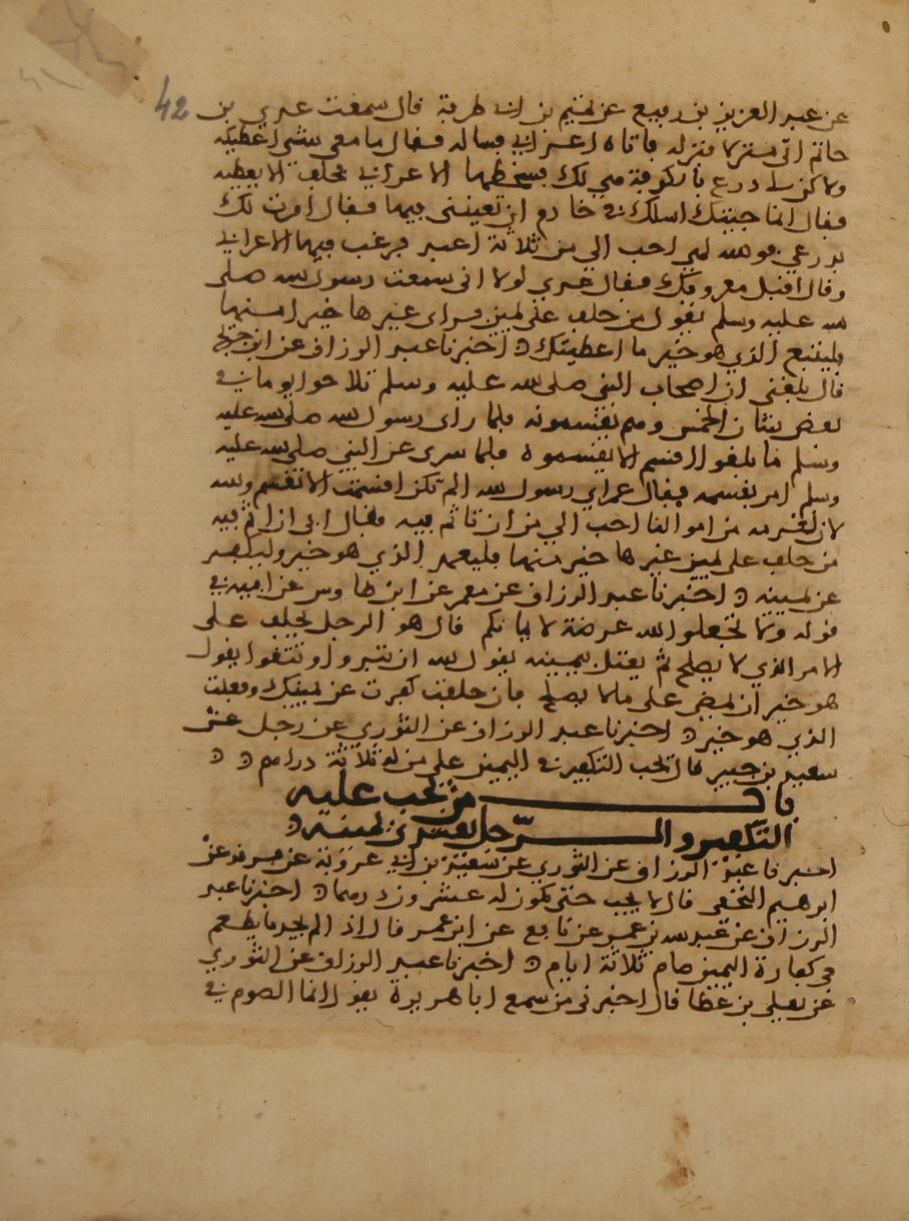 42
عن عبد العزيز بن رفيع عن تميم بن طرفة قال سمعت عدي بن
حاتم اتى منزلا فنزله فاتاه اعرابي فساله فقال ما معي شي اعطيكه
ولاكن لي درع بالكوفة هي لك فسخطها الاعرابي فحلف الا يعطيه
فقال انما جيتك اسلك في خادم ان تعينني فيها فقال امرت لك
بدرعي فوالله لهي احب الي من ثلاثة اعبد فرغب فيها الاعرابي
وقال اقبل معروفك فقال عدي لولا اني سمعت رسول الله صلى
الله عليه وسلم يقول من حلف على يمين فراى غيرها خيرا منها
فليتبع الذي هو خير ما اعطيتك اخبرنا عبد الرزاق عن ابن جريج
قال بلغني ان اصحاب النبي صلى الله عليه وسلم تلاحوا يوما في
بعض شان الخمس وهم يقتسمونه فلما راى رسول الله صلى الله عليه
وسلم ما بلغوا اقسم الا يقسموه فلما سري عن النبي صلى الله عليه
وسلم امر بقسمه فقال عمر اي رسول الله الم تكن اقسمت الا تقسم والله
لان نغرمه من اموالنا احب الي من ان تاثم فيه فقال اني لم اثم فيه
من حلف على يمين غيرها خير منها فليعمد الذي هو خير وليكفر
عن يمينه اخبرنا عبد الرزاق عن معمر عن ابن طاوس عن ابيه في
قوله ولا تجعلوا الله عرضة لايمانكم قال هو الرجل يحلف على
الامر الذي لا يصلح ثم يعتل بيمينه يقول الله ان تبروا وتتقوا يقول
هو خير ان يمضي على ما لا يصلح فان حلفت كفرت عن يمينك وفعلت
الذي هو خير اخبرنا عبد الرزاق عن الثوري عن رجل عن
سعيد بن جبير قال يجب التكفير في اليمين على من له ثلاثة دراهم
باب من يجب عليه
التكفير والرجل يعسر في يمينه
اخبرنا عبد الرزاق عن الثوري عن عن
ابرهيم النخعي قال لا يجب حتى يكون له عشرون درهما اخبرنا عبد
الرزاق عن عبد الله بن عمر عن نافع عن ابن عمر قال اذا لم يجد ما يطعم
في كفارة اليمين صام ثلاثة ايام اخبرنا عبد الرزاق عن الثوري
عن يعلى بن عطا قال اخبرني من سمع ابا هريرة يقول انما الصوم في